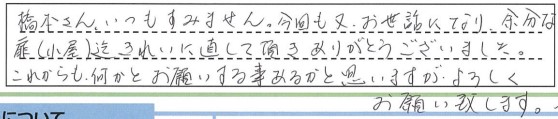 橋本さん、いつもすみません。今回も又、お世話になり、余分な
扉(小屋)迄きれいに直して頂きありがとうございました。
これからも、何かとお願いする事あるかと思いますが、よろしく
お願い致します。
について